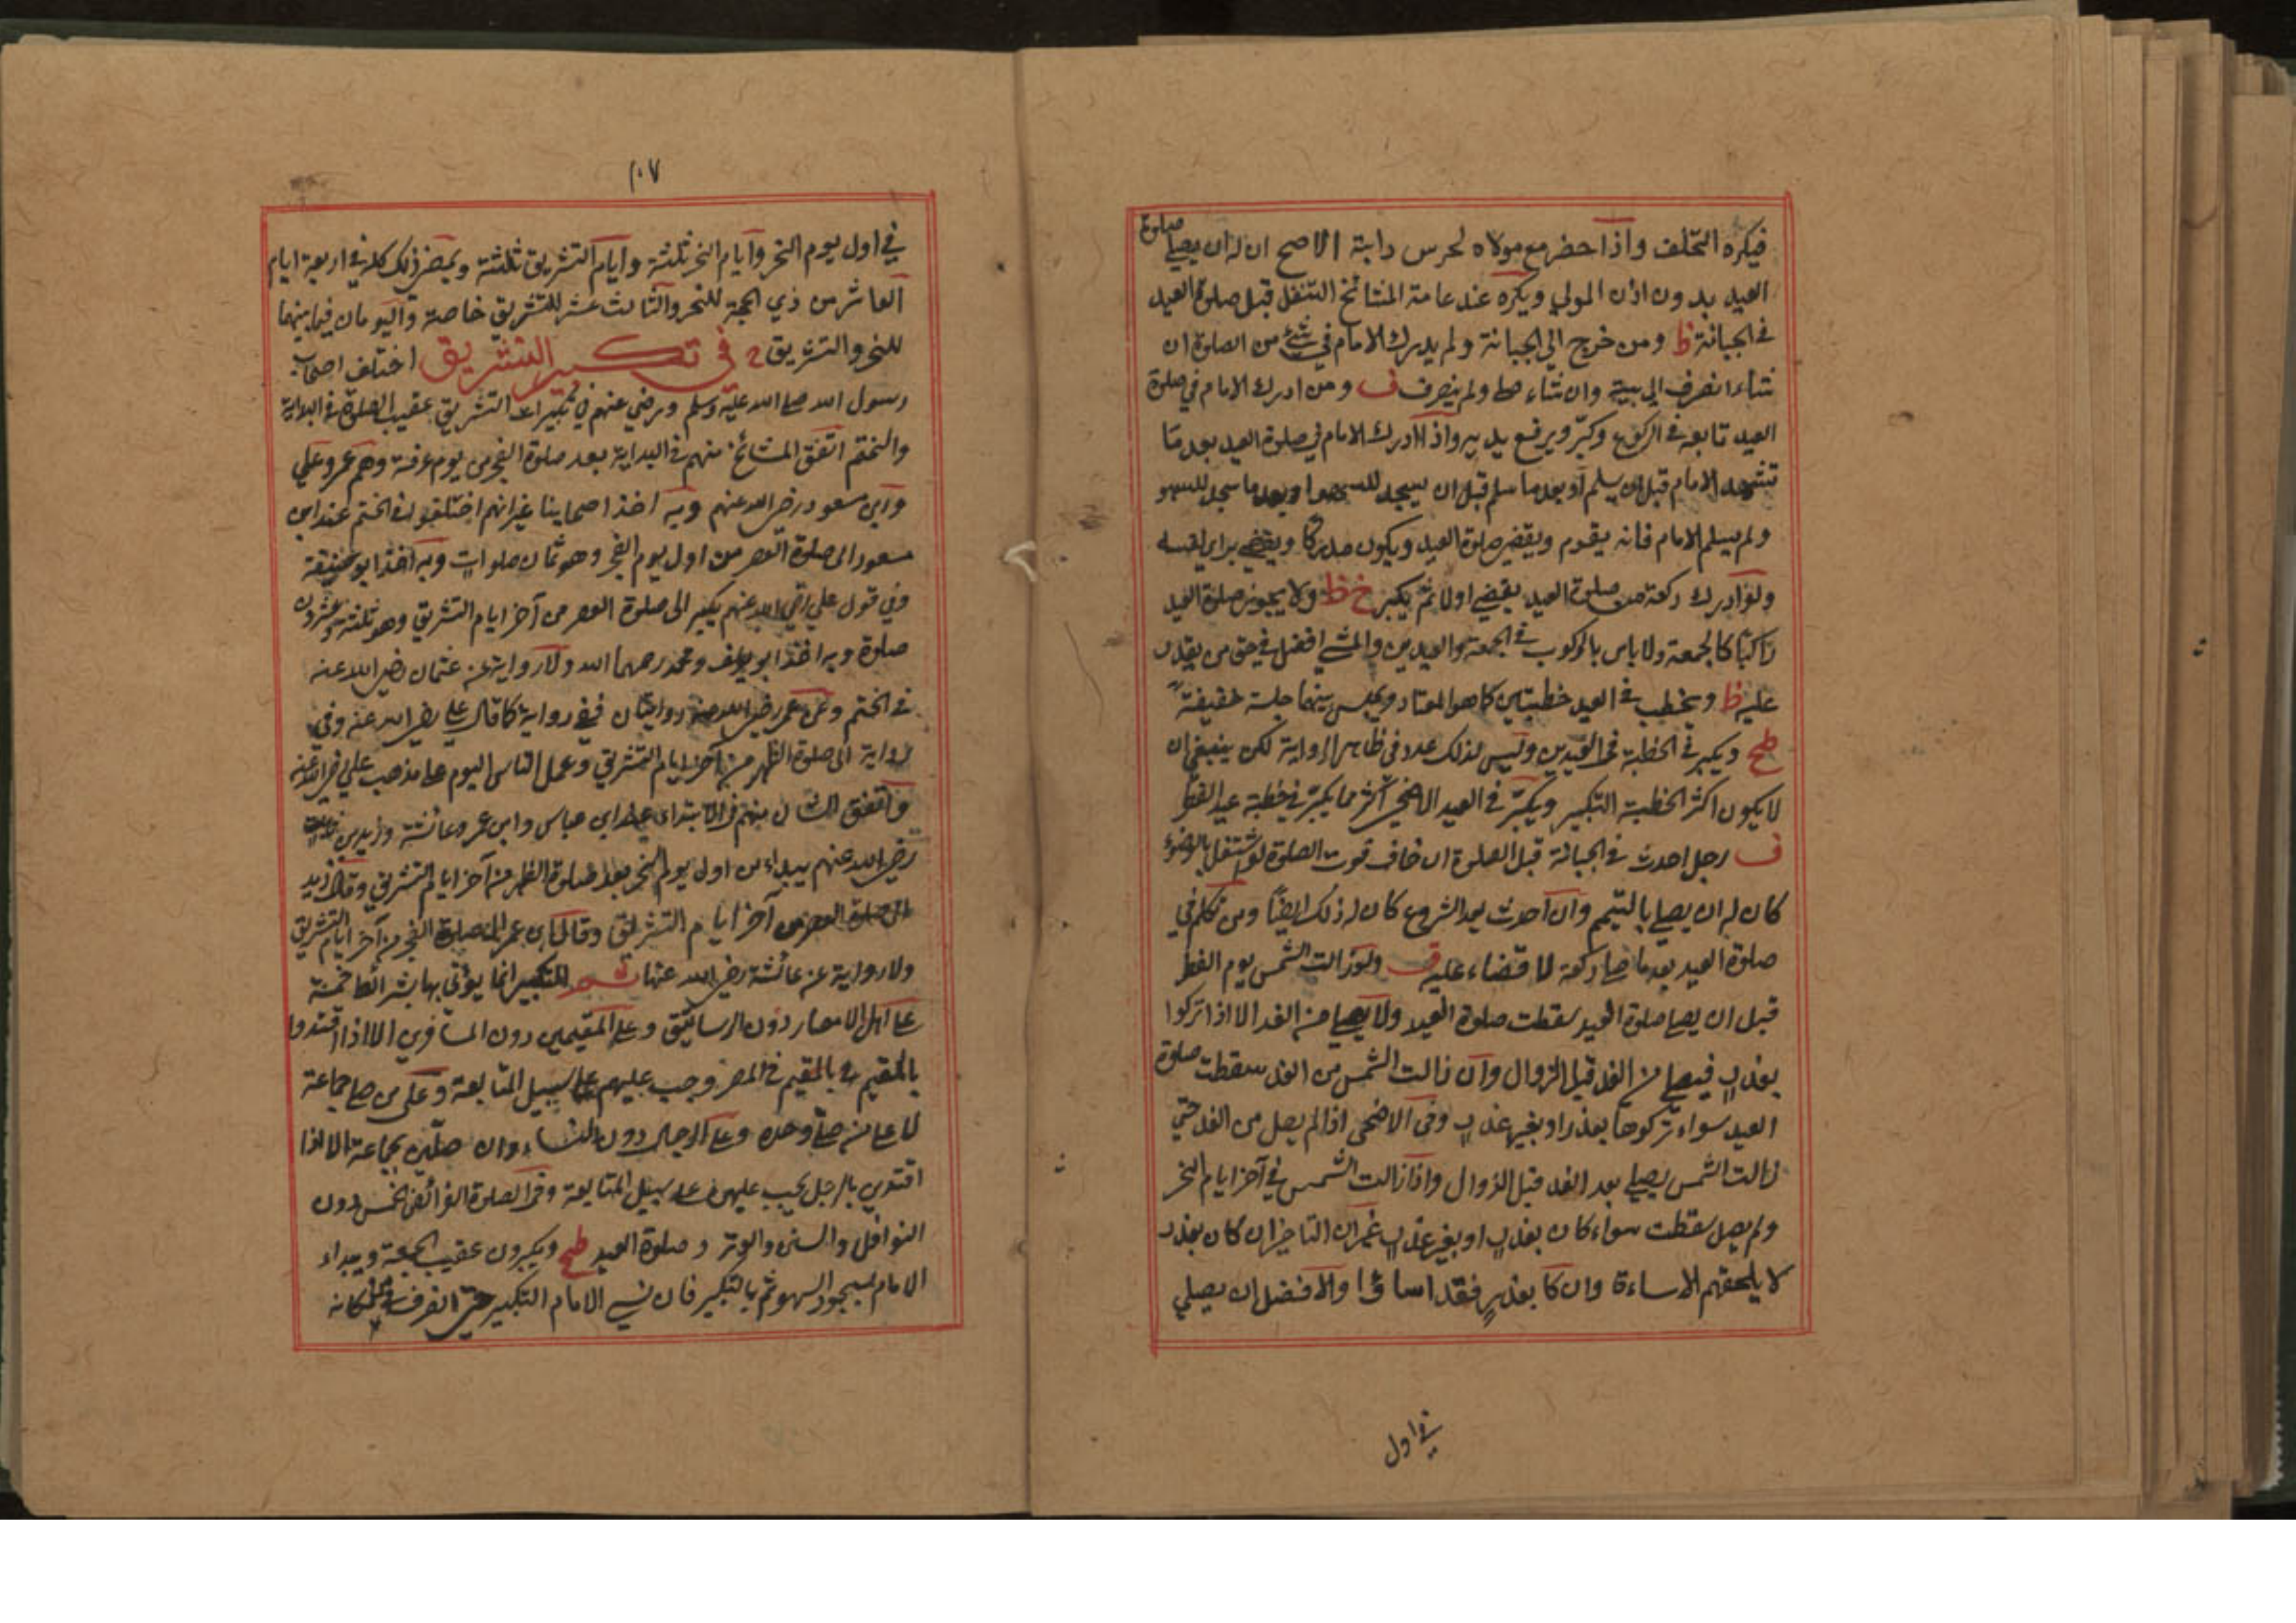 فيكره التخلف واذا حضر مع مولاه لحرس دابته الاصح ان له ان يصلي صلوة
العيد بدون اذن المولي ويكره عند عامة المشائخ التنفل قبل صلوة العيد
في الجبانة ظ ومن خرج الي الجبانة ولم يدرك الامام في شئ من الصلوة ان
شاء انصرف الي بيته وان شاء صلي ولم ينصرف ف ومن ادرك الامام في صلوة
العيد تابعه في الركوع وكبر ويرفع يديه واذا ادرك الامام في صلوة العيد بعد ما
تشهد الامام قبل ان يسلم او بعد ما سلم قبل ان يسجد للسهو او بعد ما سجد للسهو
ولم يسلم الامام فانه يقوم ويقضي صلوة العيد ويكون مدركا ويقضي براي نفسه
ولو ادرك ركعة من صلوة العيد يقضي اولا ثم يكبر خ ظ ولا يجوز صلوة العيد
راكبا كالجمعة ولا باس بالركوب في الجمعة والعيدين والمشي افضل في حق من يقدر
عليه ظ ويخطب في العيد خطبتين كما هو المعتاد ويجلس بينهما جلسة خفيفة
طح ويكبر في الخطبة في العيدين وليس لذلك عدد في ظاهر الرواية لكن ينبغي ان
لا يكون اكثر الخطبة التكبير ويكبر في العيد الاضحي اكثر مما يكبر في خطبة عيد الفطر
ف رجل احدث في الجبانة قبل الصلوة ان خاف فوت الصلوة لو اشتغل بالوضوء
كان له ان يصلي بالتيمم وان احدث بعد الشروع كان له ذلك ايضا ومن تكلم في
صلوة العيد بعد ما صلي ركعة لا قضاء عليه ف ولو زالت الشمس يوم الفطر
قبل ان يصلي صلوة العيد سقطت صلوة العيد ولا يصلي من الغد الا اذا تركوا
بعذر فيصلي من الغد قبل الزوال وان زالت الشمس من الغد سقطت صلوة
العيد سواء تركوها بعذر او بغير عذر وفي الاضحي اذا لم يصل من الغد حتي
زالت الشمس يصلي بعد الغد قبل الزوال واذا زالت الشمس في آخر ايام النحر
ولم يصل سقطت سواء كان بعذر او بغير عذر غير ان التاخير ان كان بعذر
لا يلحقهم الاساءة وان كا بعذر فقد اساؤا والافضل ان يصلي
في اول
١٠٧
في اول يوم النحر وايام النحر ثلثة وايام التشريق ثلثة ويمضي ذلك كله في اربعة ايام
العاشر من ذي الحجة للنحر والثالث عشر للتشريق خاصة واليومان فيما بينهما
للنحر والتشريق في تكبير التشريق اختلف اصحاب
رسول الله صلي الله عليه وسلم ورضي عنهم في تكبيرات التشريق عقيب الصلوة في البداية
والختم اتفق المشائخ منهم في البداية بعد صلوة الفجر من يوم عرفة وهم عمر وعلي
وابن مسعود رضي الله عنهم وبه اخذ اصحابنا غير انهم اختلفوا في الختم عند ابن
مسعود الى صلوة العصر من اول يوم النحر وهو ثمان صلوات وبه اخذ ابو حنيفة
وفي قول علي رضي الله عنهم يكبر الى صلوة العصر من آخر ايام التشريق وهو ثلثة وعشرون
صلوة وبه اخذ ابو يوسف ومحمد رحمهما الله ولا رواية عن عثمان رضي الله عنه
في الختم وعن عمر رضي الله عنه روايتان ففي رواية كما قال علي رضي الله عنه وفي
رواية الى صلوة الظهر من آخر ايام التشريق وعمل الناس اليوم علي مذهب علي رضي الله عنه
واتفق الشبان منهم في الابتداء ابن عباس وابن عمر وعائشة وزيد بن ثابت
رضي الله عنهم يبداء من اول يوم النحر بعد صلوة الظهر من آخر ايام التشريق وقال زيد
الى صلوة العصر من آخر ايام التشريق وقال ابن عمر الى صلوة الفجر من آخر ايام التشريق
ولا رواية عن عائشة رضي الله عنها التكبير انما يؤتي بها بشرائط خمسة
علي اهل الامصار دون الرساتيق وعلي المقيمين دون المسافرين الا اذا اقتدوا
بالمقيم في المصر وجب عليهم علي سبيل المتابعة وعلي من صلي جماعة
لا علي من صلي وحده وعلي الرجال دون النساء وان صلين بجماعة الا اذا
اقتدين بالرجل يجب عليهن علي سبيل المتابعة وفي الصلوة الفرائض الخمس دون
النوافل والسنن والوتر وصلوة العيد طح ويكبرون عقيب الجمعة ويبداء
الامام بسجود السهو ثم بالتكبير فان نسي الامام التكبير حتي انصرف مكانه